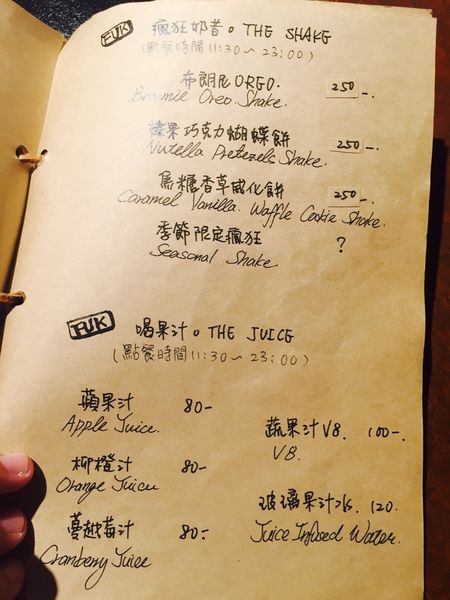 FUK 瘋狂奶昔。THE SHAKE
(點餐時間 11:30～23:00)
布朗尼OREO. 250-.
Brownie Oreo Shake.
榛果巧克力蝴蝶餅 250-.
Nutella Pretezels Shake.
焦糖香草威化餅 250-.
Caramel Vanilla. Waffle Cookie Shake.
季節限定瘋狂 ?
Seasonal Shake
FUK 喝果汁。THE JUICE
(點餐時間 11:30～23:00)
蘋果汁 80-
Apple Juice.
柳橙汁 80-
Orange Juice
蔓越莓汁 80-.
Cranberry Juice
蔬果汁 V8. 100-.
V8.
玻璃果汁水. 120.
Juice Infused Water.